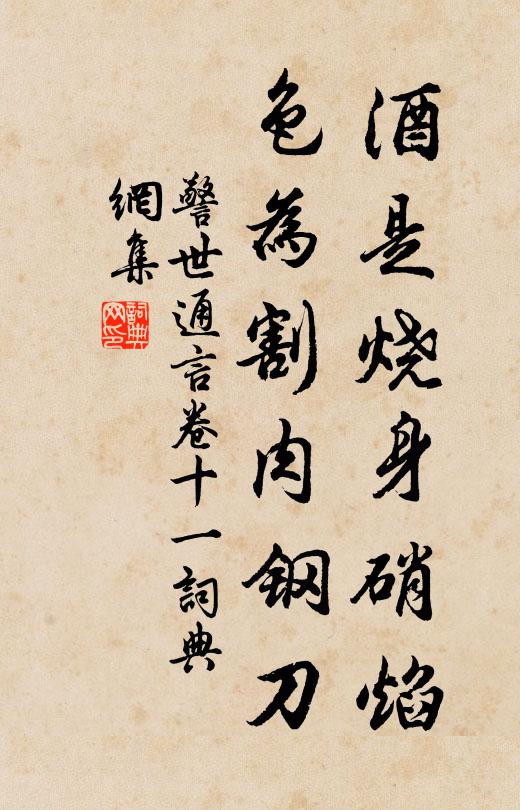 酒是烧身硝焰
色為割肉钢刀
警世通言卷十一詞典
網集
詞典网印